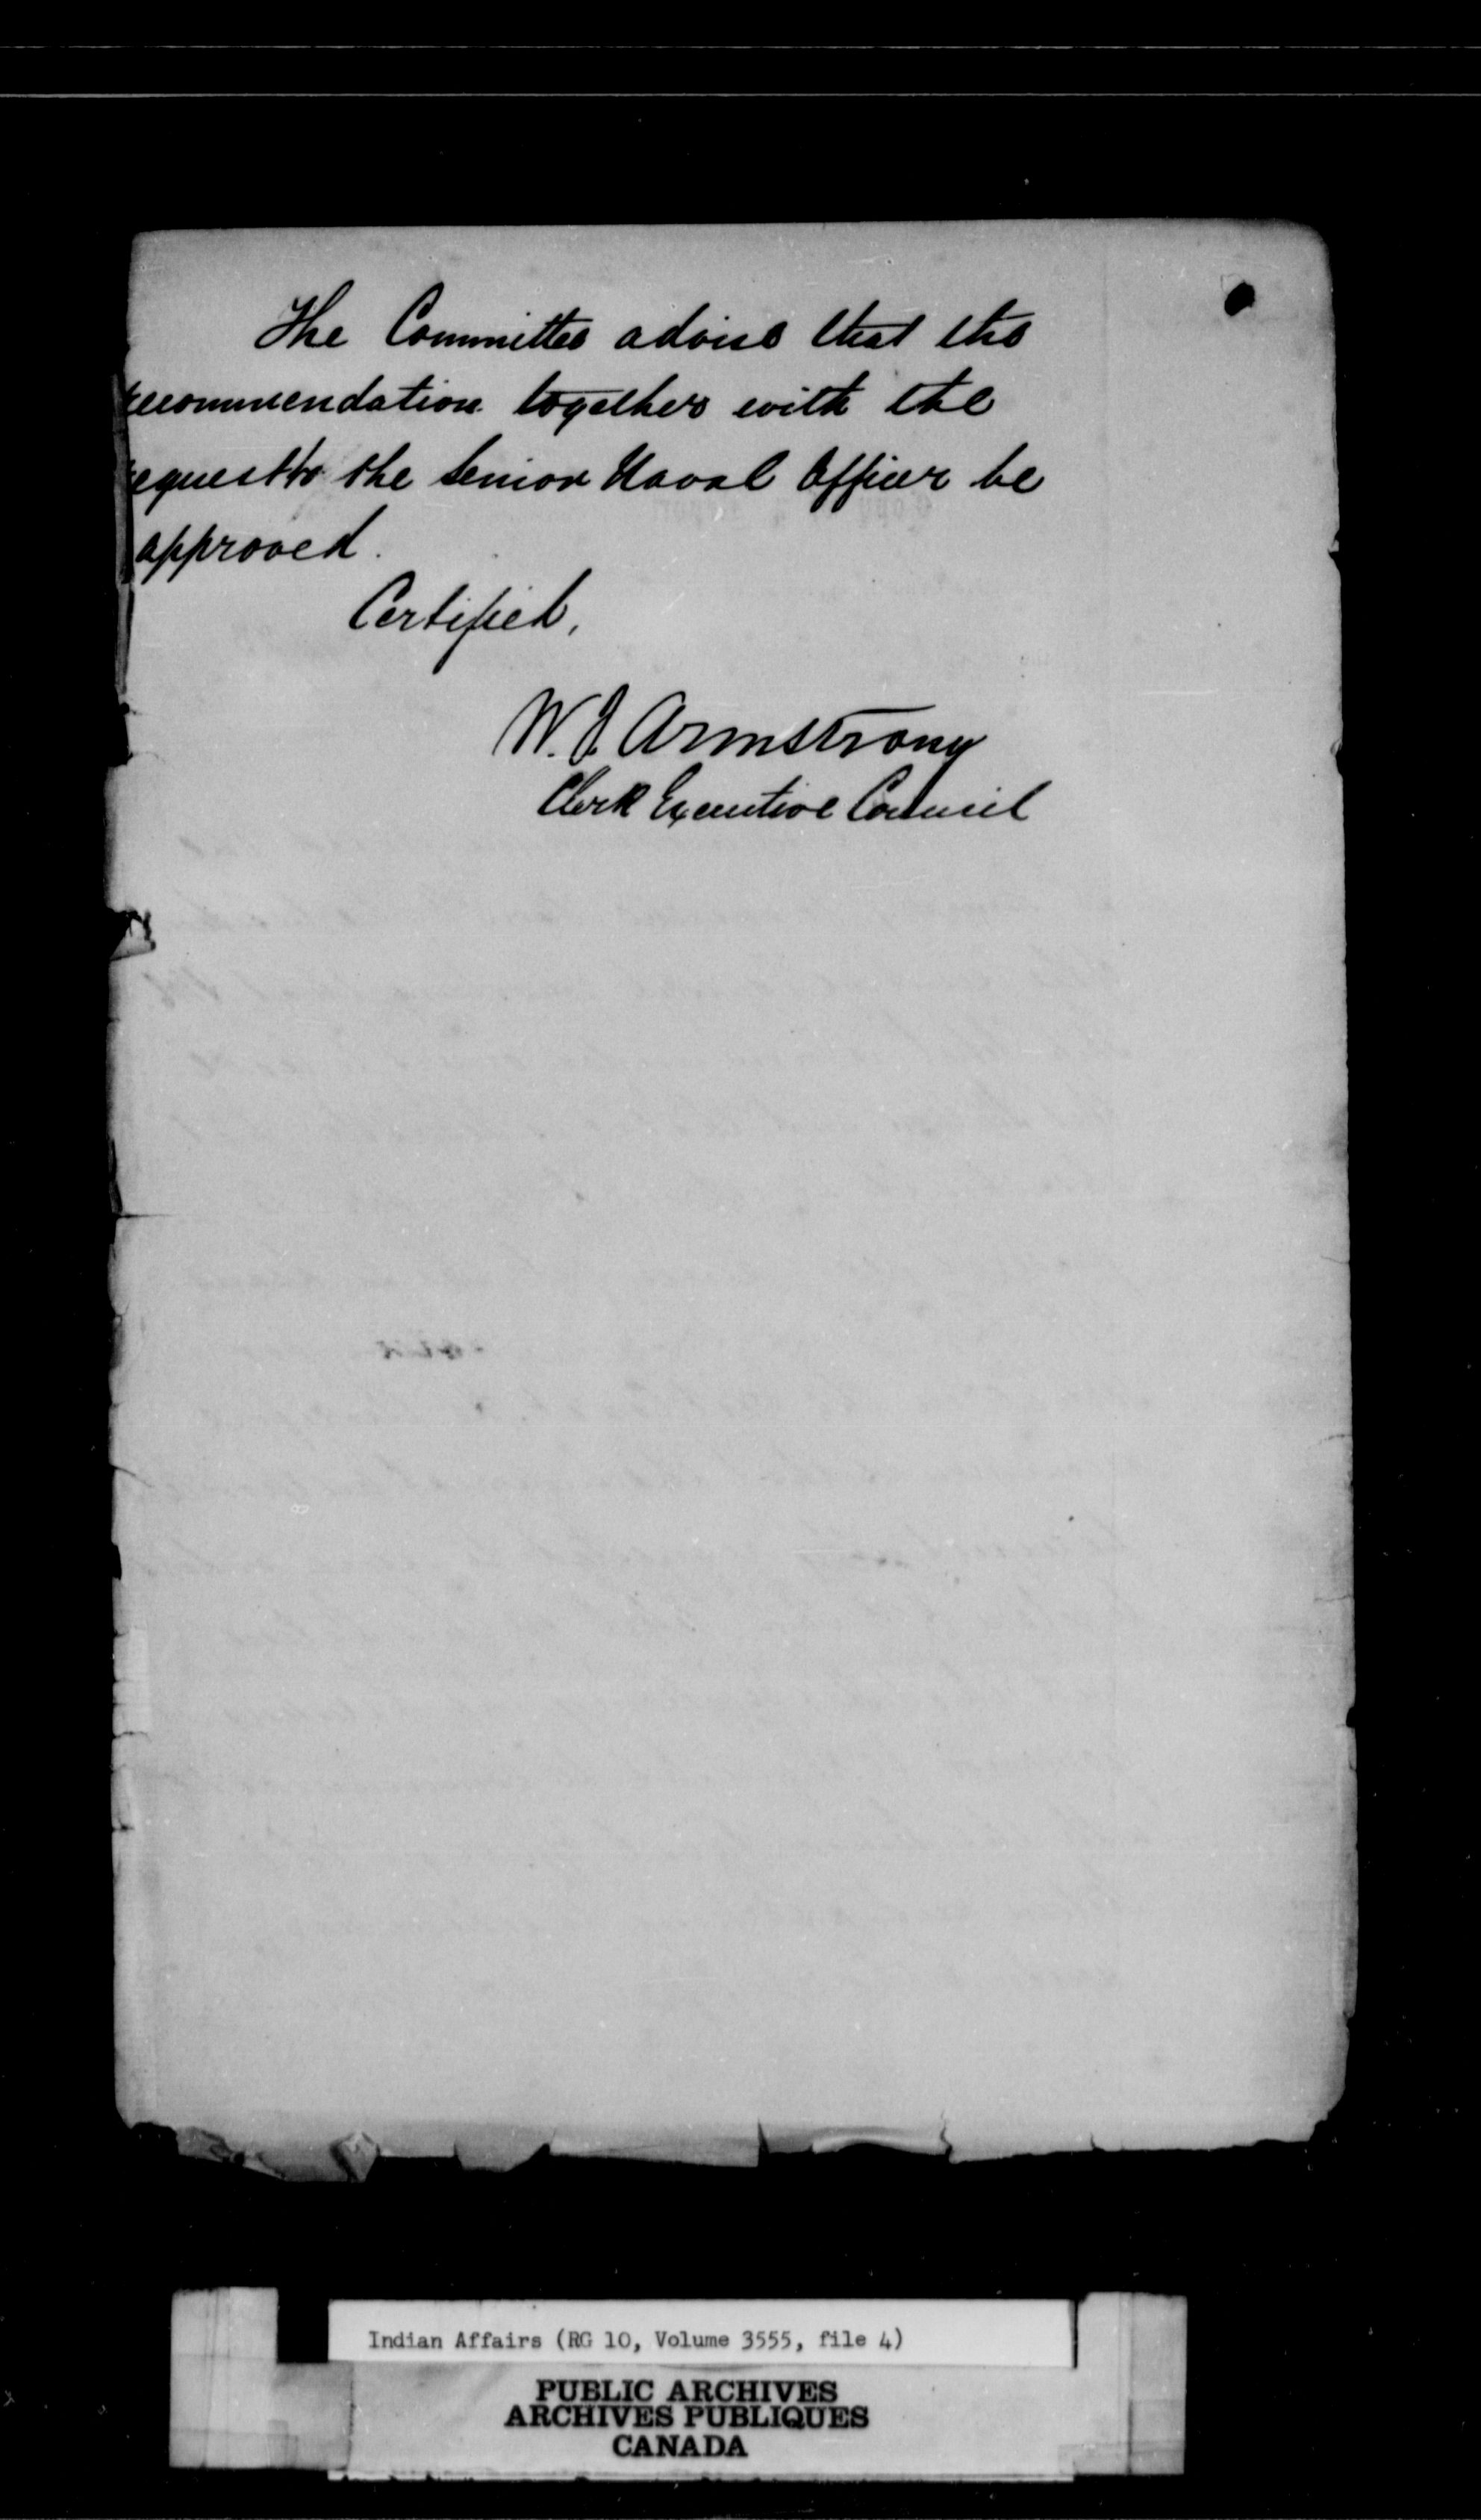 The Committee advise that the
recommendation together with the
request to the Senior Naval Officer be
approved.
Certified,
W. J Armstrong
Clerk Executive Council
Indian Affairs (RG 10, Volume 3555, file 4)
PUBLIC ARCHIVES
ARCHIVES PUBLIQUES
CANADA